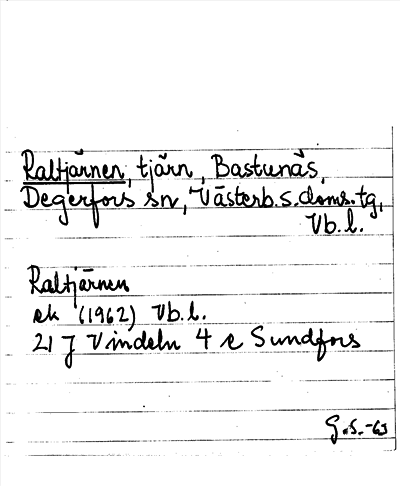 Raltjärnen, tjärn, Bastunäs,
Degerfors sn, Västerb.s.doms.tg,
Vb.l.
Raltjärnen
ek (1962) Vb.l.
21 J Vindeln 4 e Sundfors
G.S.-63